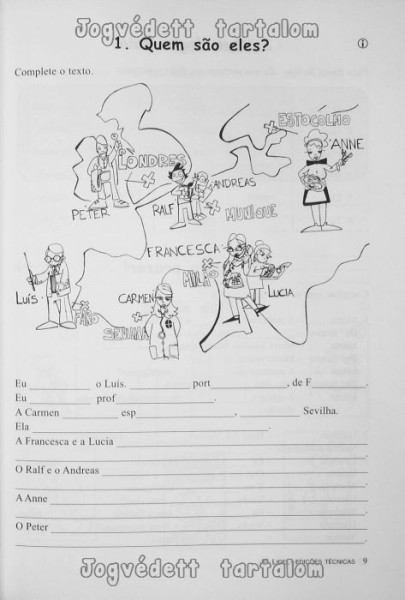 Jogvédett tartalom
1. Quem são eles?
i
Complete o texto.
ESTOCOLMO
ANNE
LONDRES
ANDREAS
PETER
RALF
MUNIQUE
FRANCESCA
MILÃO
LUÍS
CARMEN
LUCIA
FARO
SEVILHA
Eu ____________ o Luís. ____________ port____________, de F____________.
Eu ____________ prof____________.
A Carmen ____________ esp____________, ____________ Sevilha.
Ela ____________.
A Francesca e a Lucia ____________
O Ralf e o Andreas ____________
A Anne ____________
O Peter ____________
EDIÇÕES TÉCNICAS 9
Jogvédett tartalom